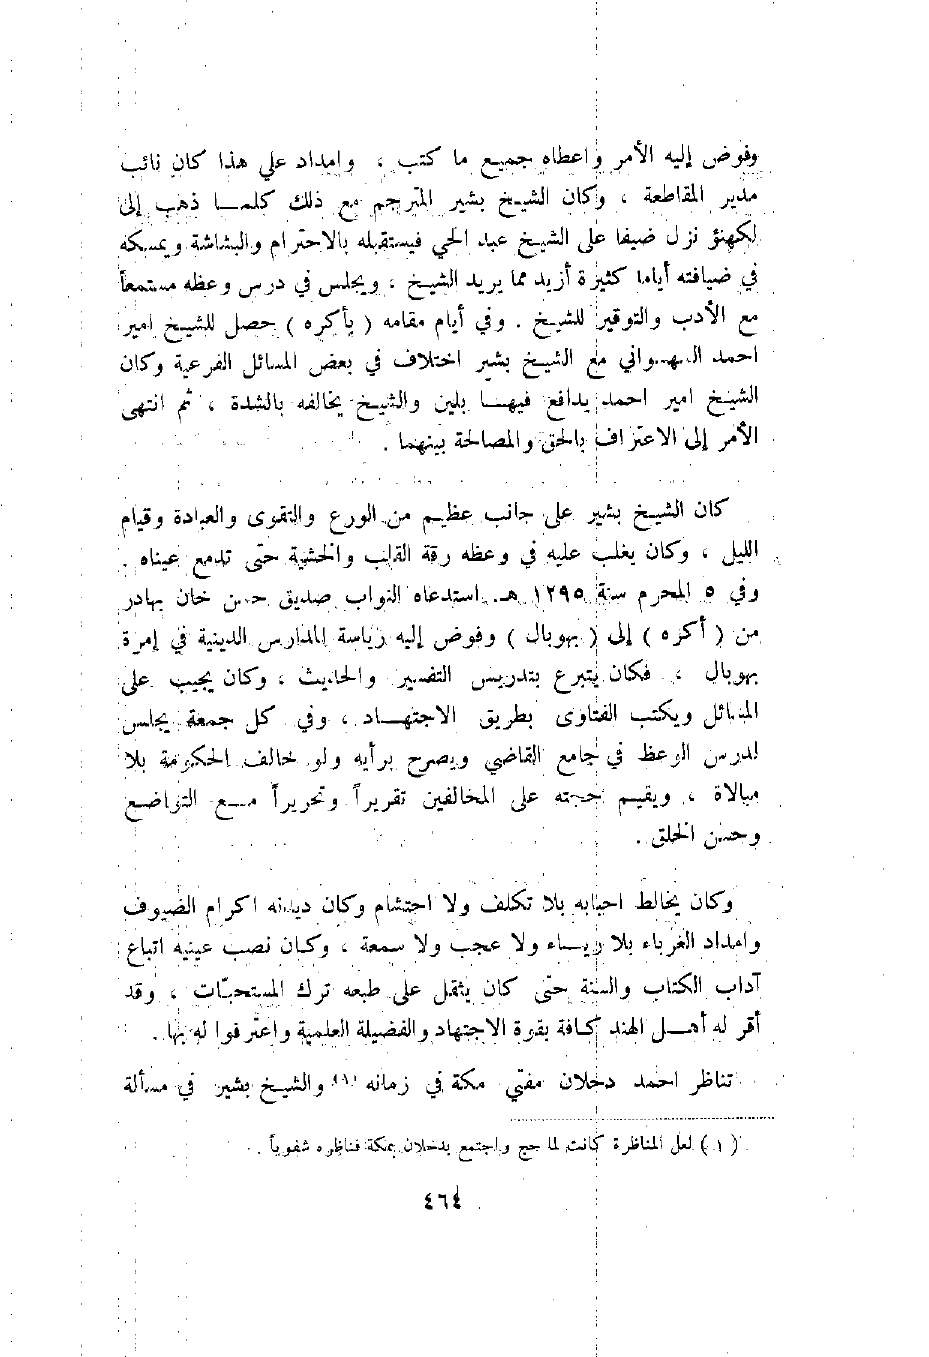 وفوض إليه الأمر واعطاه جميع ما كتب ، وامداد علي هذا كان نائب
مدير المقاطعة ، وكان الشيخ بشير المترجم مع ذلك كلمـا ذهب إلى
لكهنؤ نزل ضيفا على الشيخ عبد الحي فيستقبله بالاحترام والبشاشة ويمسكه
في ضيافته أياما كثيرة أزيد مما يريد الشيخ ، ويجلس في درس وعظه مستمعاً
مع الأدب والتوقير للشيخ . وفي أيام مقامه ( بأكره ) حصل للشيخ امير
احمد السهسواني مع الشيخ بشير اختلاف في بعض المسائل الفرعية وكان
الشيخ امير احمد يدافع فيهـا بلين والشيخ يخالفه بالشدة ، ثم انتهى
الأمر إلى الاعتراف بالحق والمصالحة بينهما .
كان الشيخ بشير على جانب عظيم من الورع والتقوى والعبادة وقيام
الليل ، وكان يغلب عليه في وعظه رقة القلب والخشية حتى تدمع عيناه .
وفي ٥ المحرم سنة ١٢٩٥ هـ. استدعاه النواب صديق حسن خان بهادر
من ( أكره ) إلى ( بهوبال ) وفوض إليه رياسة المدارس الدينية في إمرة
بهوبال ، فكان يتبرع بتدريس التفسير والحديث ، وكان يجيب على
المسائل ويكتب الفتاوى بطريق الاجتهـاد ، وفي كل جمعة يجلس
لدرس الوعظ في جامع القاضي ويصرح برأيه ولو خالف الحكومة بلا
مبالاة ، ويقيم حجته على المخالفين تقريراً وتحريراً مـع التواضع
وحسن الخلق .
وكان يخالط احبابه بلا تكلف ولا احتشام وكان ديدنه اكرام الضيوف
وامداد الغرباء بلا ريـاء ولا عجب ولا سمعة ، وكان نصب عينيه اتباع
آداب الكتاب والسنة حتى كان يثقل على طبعه ترك المستحبّات ، وقد
أقر له أهـل الهند كافة بقوة الاجتهاد والفضيلة العلمية واعترفوا له بها .
تناظر احمد دحلان مفتي مكة في زمانه (١) والشيخ بشير في مسألة
( ١ ) لعل المناظرة كانت لما حج واجتمع بدحلان بمكة فناظره شفوياً .
٤٦٤